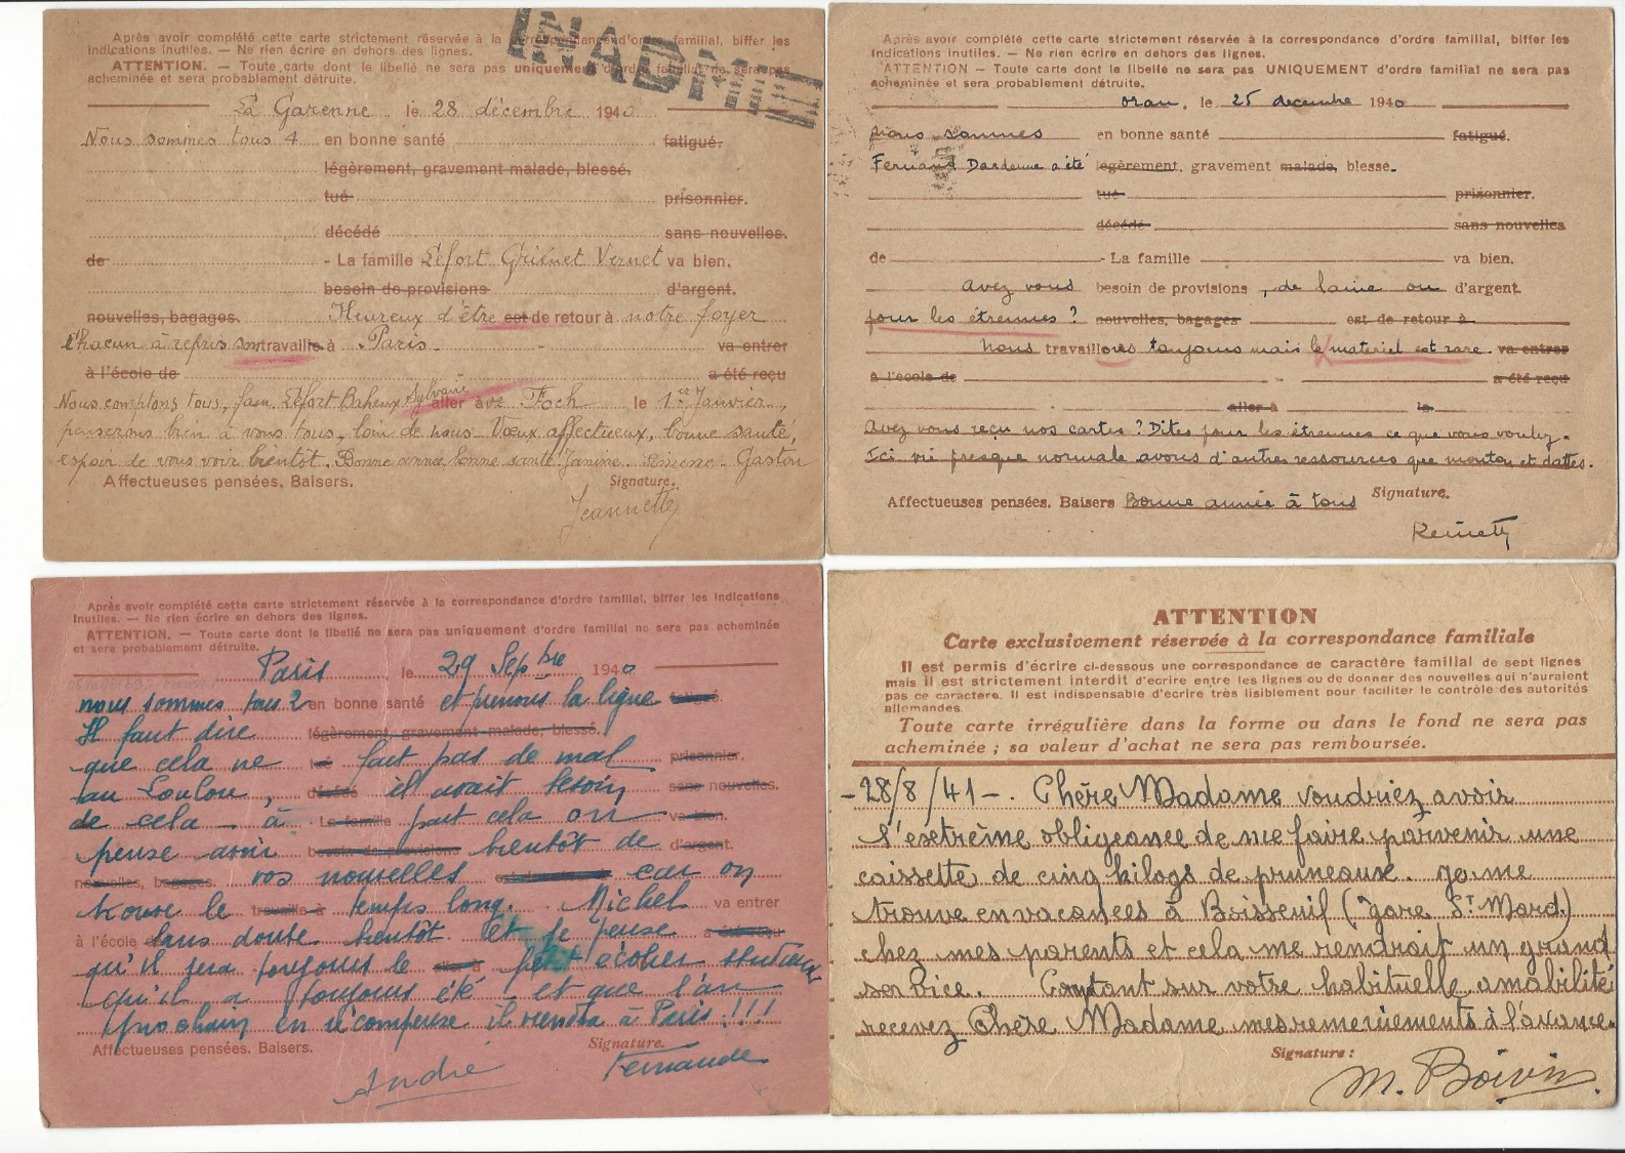 Après avoir complété cette carte strictement réservée à la correspondance d'ordre familial, biffer les
indications inutiles. — Ne rien écrire en dehors des lignes.
ATTENTION. — Toute carte dont le libellé ne sera pas uniquement d'ordre familial ne sera pas
acheminée et sera probablement détruite.
INADMIS
La Garenne le 28 décembre 1940
Nous sommes tous 4 en bonne santé fatigué.
légèrement, gravement malade, blessé.
tué prisonnier.
décédé sans nouvelles.
de - La famille Lefort Griénet Vernet va bien.
besoin de provisions d'argent.
nouvelles, bagages. Heureux d'être est de retour à notre foyer
Chacun a repris son travaille à Paris va entrer
à l'école de a été reçu
Nous comptons tous, fam. Lefort Baheux Sylvain aller à ave Foch le 1er Janvier,
penserons bien à vous tous, loin de nous. Vœux affectueux, bonne santé,
espoir de vous voir bientôt. Bonne année, bonne santé. Janine. Simone. Gaston
Affectueuses pensées. Baisers. Signature.
Jeannette
Après avoir complété cette carte strictement réservée à la correspondance d'ordre familial, biffer les
indications inutiles. — Ne rien écrire en dehors des lignes.
ATTENTION — Toute carte dont le libellé ne sera pas UNIQUEMENT d'ordre familial ne sera pas
acheminée et sera probablement détruite.
oran, le 25 decembre 1940
nous sommes en bonne santé fatigué.
Fernand Dardenne a été légèrement, gravement malade, blesse.
tué prisonnier.
décédé sans nouvelles
de - La famille va bien.
avez vous besoin de provisions, de laine ou d'argent
pour les étrennes ? nouvelles, bagages est de retour à
Nous travaillons toujours mais le materiel est rare. va entrer
à l'école de a été reçu
aller à le
Avez vous reçu nos cartes ? Dites pour les étrennes ce que vous voulez.
Ici vie presque normale avons d'autres ressources que mouton et dattes.
Affectueuses pensées. Baisers Bonne année à tous Signature.
Après avoir complété cette carte strictement réservée à la correspondance d'ordre familial, biffer les indications
inutiles. — Ne rien écrire en dehors des lignes.
ATTENTION. — Toute carte dont le libellé ne sera pas uniquement d'ordre familial ne sera pas acheminée
et sera probablement détruite.
Paris le 29 Sepbre 1940
nous sommes tous 2 en bonne santé et prenons la ligne fatigué.
Il faut dire légèrement, gravement malade, blessé.
que cela ne tué fait pas de mal prisonnier.
au Loulou, décédé il avait besoin sans nouvelles.
de cela — à La famille part cela on va bien.
pense avoir besoin de provisions bientôt de d'argent.
nouvelles, bagages. vos nouvelles est de retour à car on
trouve le travaille à temps long. Michel va entrer
à l'école de sans doute bientôt et je pense a été reçu
qu'il sera toujours le aller à petit écolier studieux
qu'il a toujours été et que l'an
prochain en récompense il viendra à Paris !!!
Affectueuses pensées. Baisers. Signature.
André Fernande
ATTENTION
Carte exclusivement réservée à la correspondance familiale
Il est permis d'écrire ci-dessous une correspondance de caractère familial de sept lignes
mais il est strictement interdit d'écrire entre les lignes ou de donner des nouvelles qui n'auraient
pas ce caractère. Il est indispensable d'écrire très lisiblement pour faciliter le contrôle des autorités
allemandes.
Toute carte irrégulière dans la forme ou dans le fond ne sera pas
acheminée ; sa valeur d'achat ne sera pas remboursée.
-28/8/41-. Chère Madame voudriez avoir
l'extrême obligeance de me faire parvenir une
caissette de cinq kilogs de pruneaux. Je me
trouve en vacances à Boisseuil (gare St Mard.)
chez mes parents et cela me rendrait un grand
service. Comptant sur votre habituelle amabilité
recevez Chère Madame mes remerciements à l'avance.
Signature :
M. Boivin.